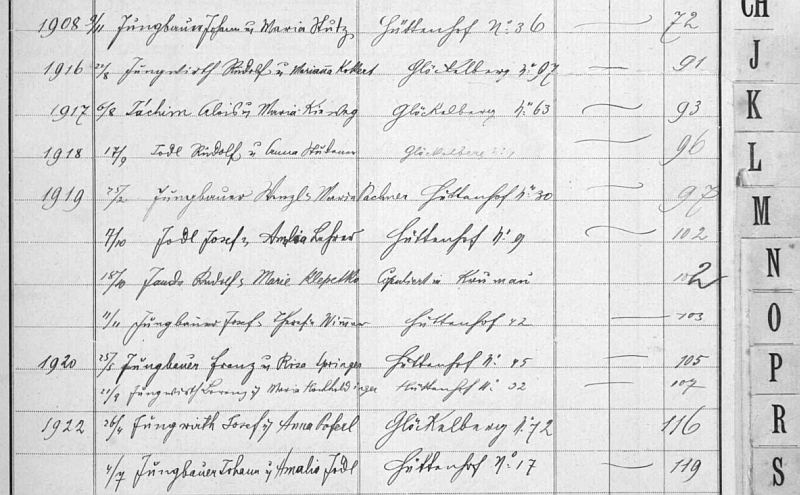 1908 9/11 Jungbauer Johann u Maria Stutz Hüttenhof No 36 72
1916 Jungwirth Rudolf u Marianna Glöckelberg No 97 91
1917 6/8 Jáchim Alois u Maria Glöckelberg No 63 93
1918 17/9 Jodl Rudolf u Anna Glöckelberg 96
1919 25/2 Jungbauer Wenzl u Maria Pachner Hüttenhof No 30 97
7/10 Jodl Josef u Amalia Lehrer Hüttenhof No 9 102
18/10 Jando Rudolf u Marie Klepetko Copuliert in Krumau 102
11/11 Jungbauer Josef u Wimmer Hüttenhof 42 103
1920 25/5 Jungbauer Franz u Rosa Springer Hüttenhof No 45 105
Jungwirth Lorenz u Maria Hüttenhof No 32 107
1922 26/4 Jungwirth Josef u Anna Poferl Glöckelberg No 72 116
4/7 Jungbauer Johann u Amalia Jodl Hüttenhof No 17 119
CH
J
K
L
M
N
O
P
R
S